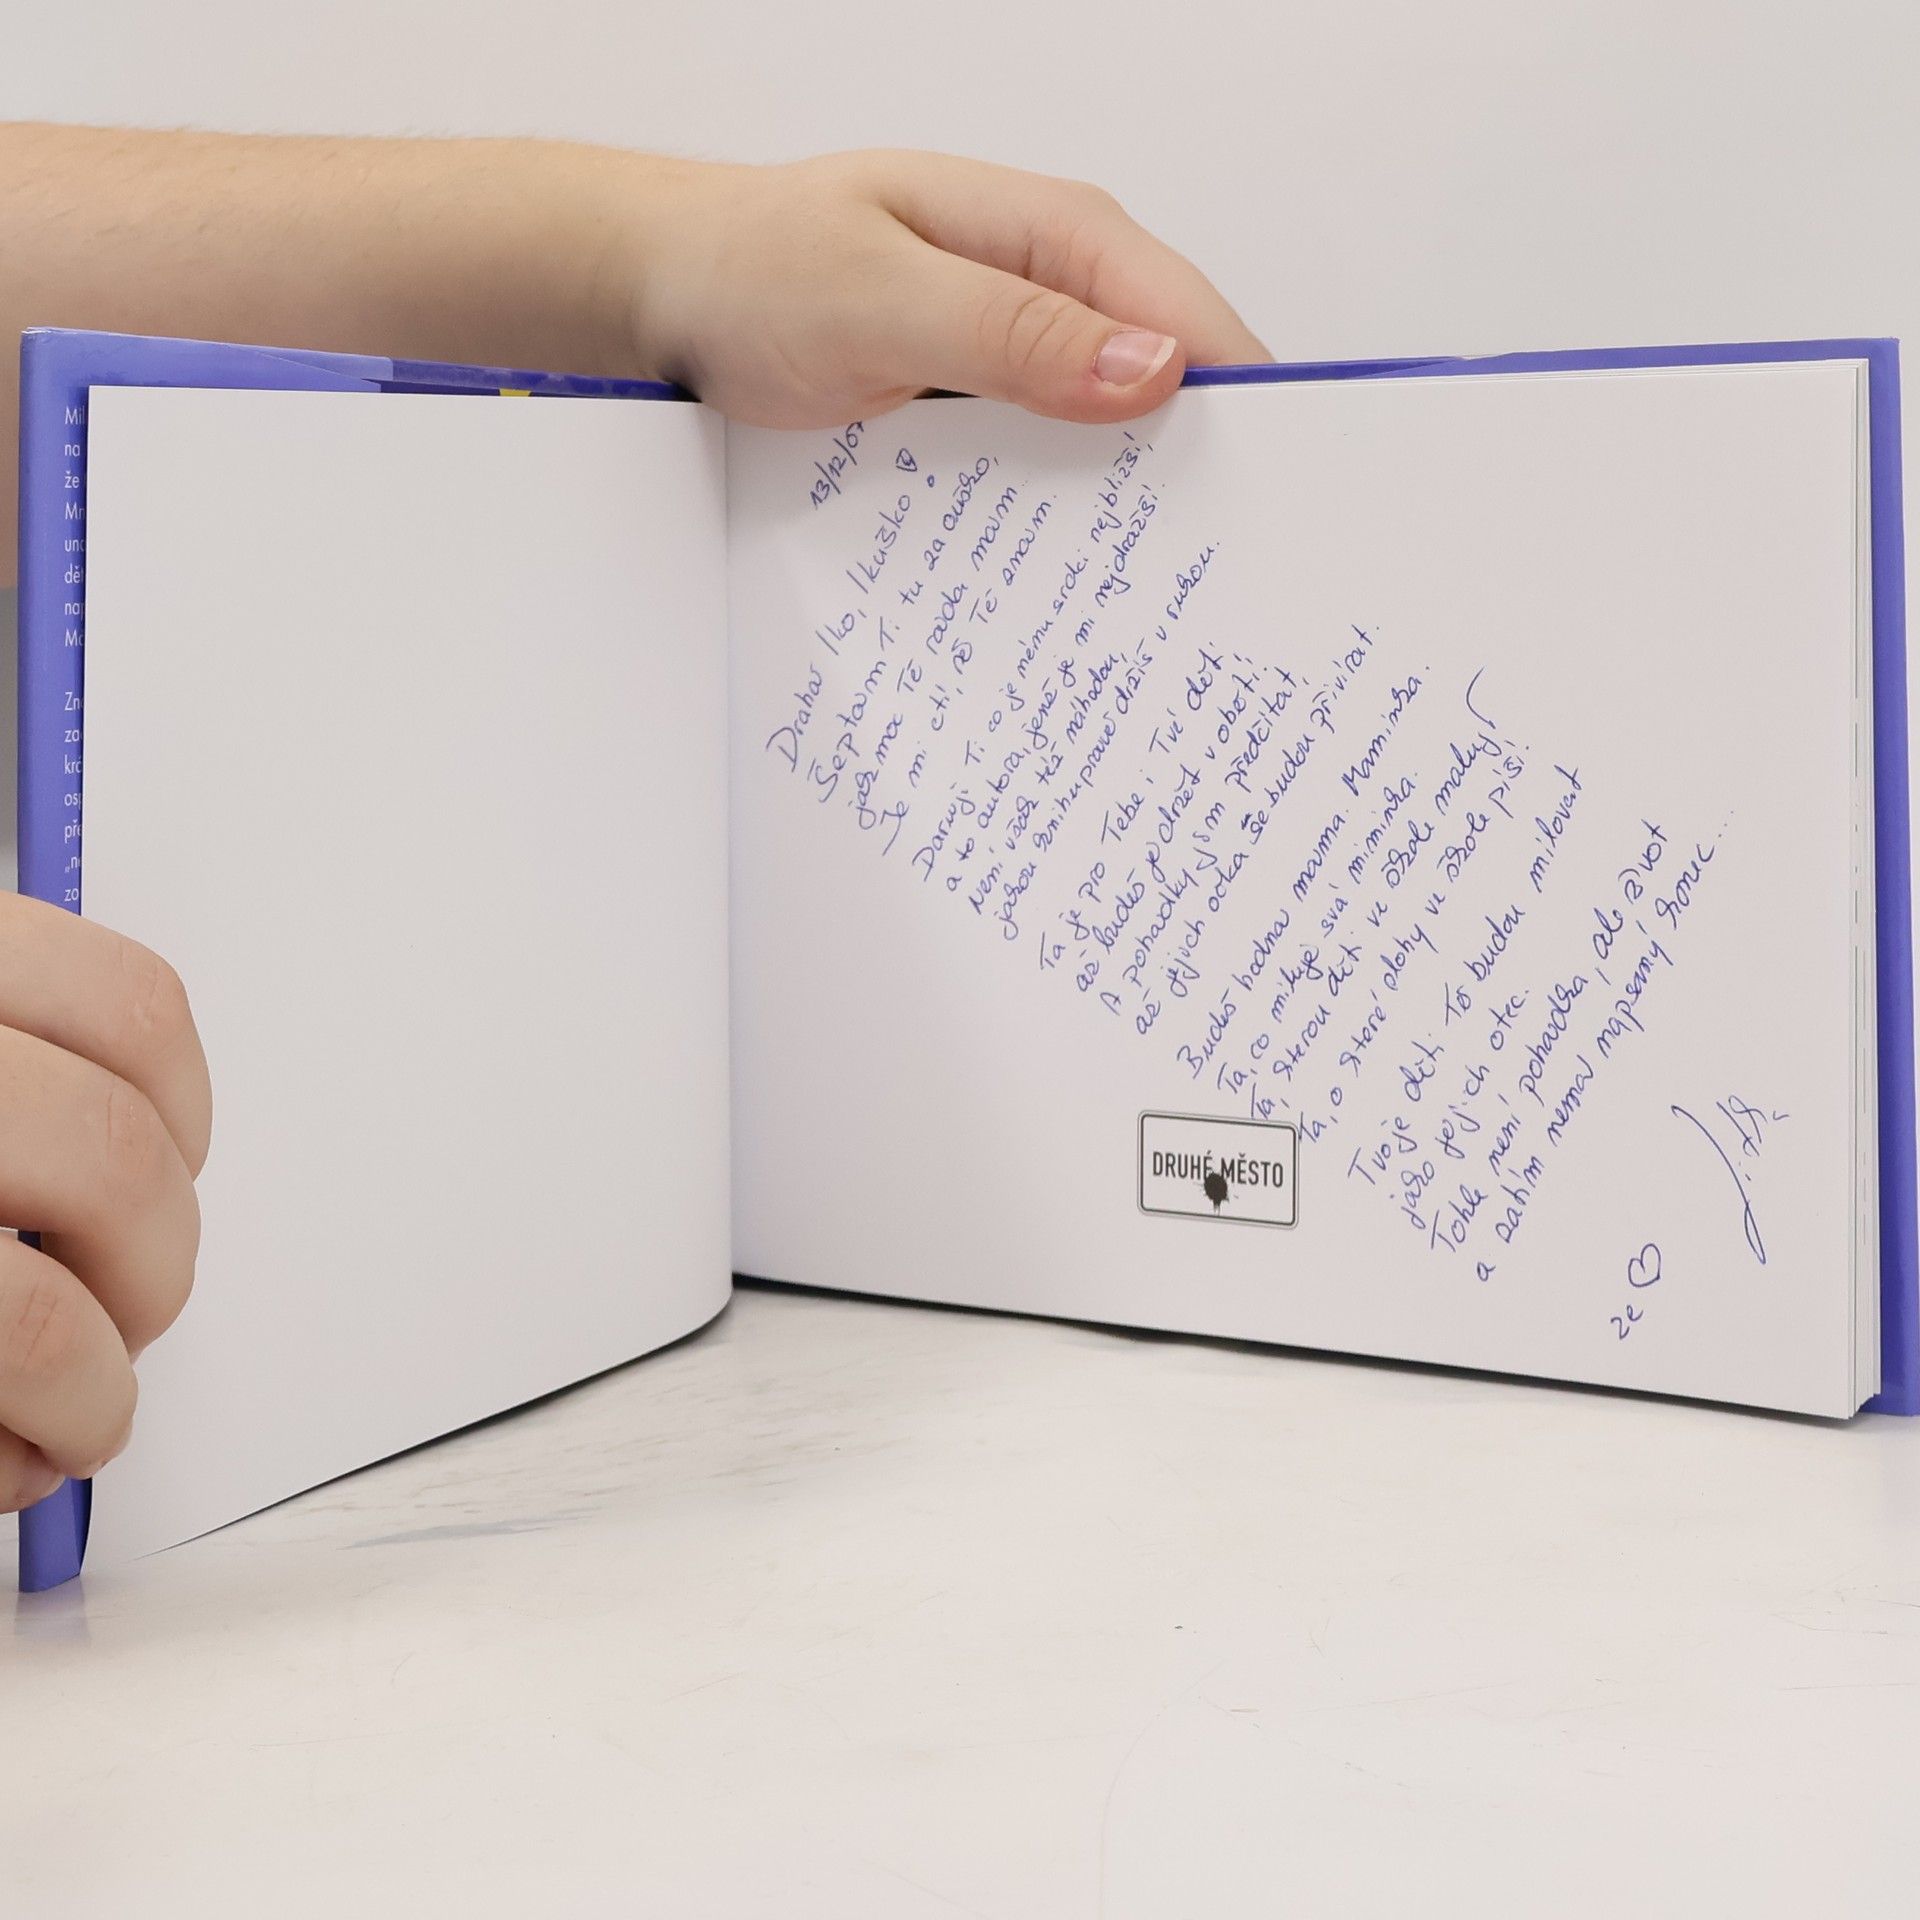 Mil
na
že
Mn
unc
dět
nap
Mo
Zno
zac
krá
osp
pře
„ne
zo
13/12/07
Drahá Iko, Ikuško!
Šeptám Ti tu za ouško,
jak moc Tě ráda mám.
Je mi ctí, že Tě znám.
Daruji Ti co je mému srdci nejbližší,
a to autora, jenž je mi nejdražší.
Není však též náhodou,
jakou knihu právě držíš v rukou.
Ta je pro Tebe i Tvé děti.
až budeš je držet v obětí,
A pohádky jim předčítat,
až jejich očka se budou přivírat.
Budeš hodná máma. Maminka.
Ta, co miluje svá miminka.
Ta, kterou děti ve škole malují
Ta, o které slohy ve škole píší.
Tvoje děti Tě budou milovat
jako jejich otec.
Tohle není pohádka, ale život
a zatím nemá napsaný konec...
ze ♡
DRUHÉ MĚSTO